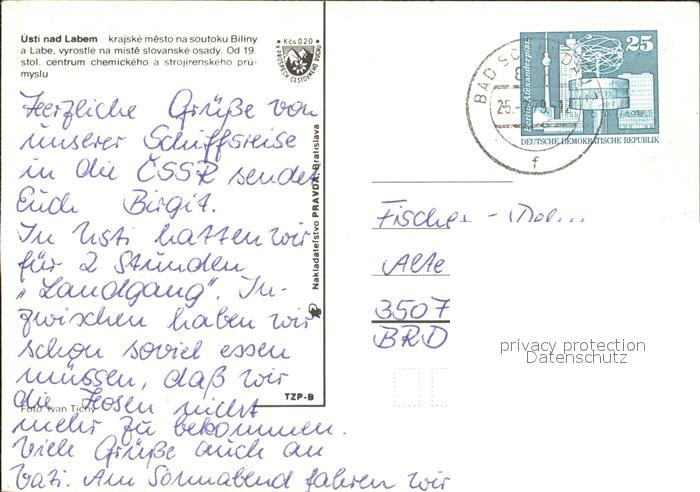 Ústí nad Labem krajské město na soutoku Bíliny
a Labe, vyrostlé na místě slovanské osady. Od 19.
stol. centrum chemického a strojírenského prů-
myslu
Kčs 0.20
Herzliche Grüße von
unserer Schiffsreise
in die ČSSR sendet
Euch Birgit.
In Usti hatten wir
für 2 Stunden
„Landgang". In-
zwischen haben wir
schon soviel essen
müssen, daß wir
die Hosen nicht
mehr zu bekommen.
Viele Grüße auch an
Vati. Am Sonnabend fahren wir
Foto Ivan Tichý
Nakladateľstvo PRAVDA, Bratislava
TZP-B
BAD
25
Berlin-Alexanderplatz
DEUTSCHE DEMOKRATISCHE REPUBLIK
f
Fischer -
Alte
3507
BRD
privacy protection
Datenschutz